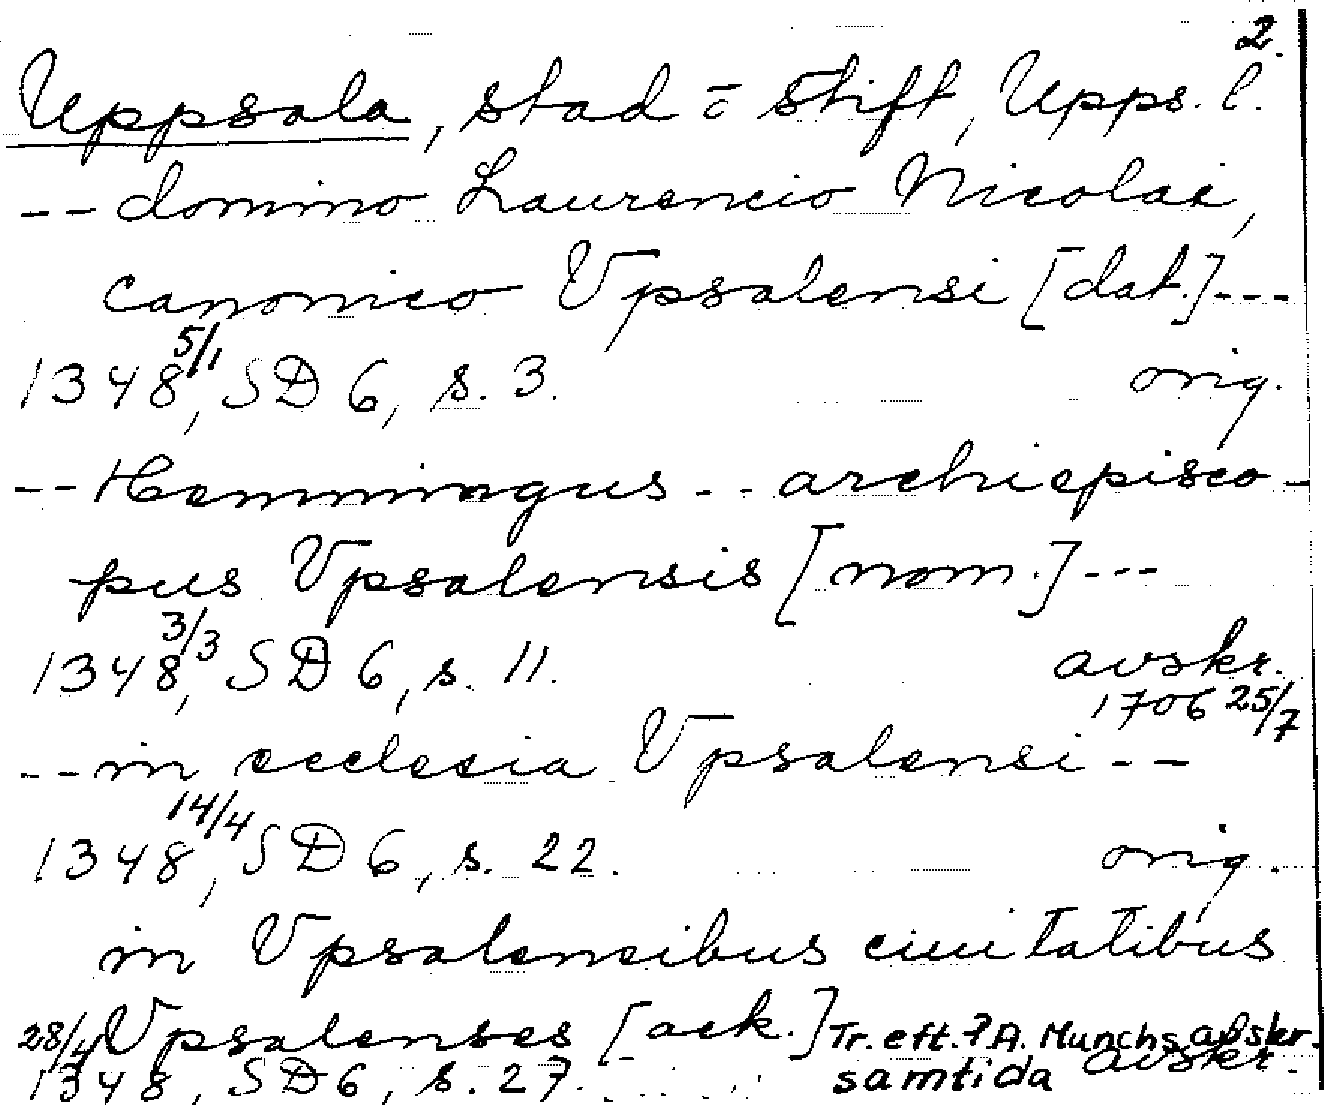 2.
Uppsala, stad o stift, Upps. l.
-- domino Laurencio Nicolai,
canonico Vpsalensi [dat.] ---
1348 5/1, SD 6, s. 3. orig.
-- Hemmingus -- archiepisco-
pus Vpsalensis [nom.] ---
1348 3/3, SD 6, s. 11. avskr.
1706 25/7
-- in ecclesia Vpsalensi --
1348 14/4, SD 6, s. 22. orig.
in Vpsalensibus ciuitatibus
Vpsalenses [ack.] Tr. eft. P.A. Munchs avskr.
28/4 1348, SD 6, s. 27. samtida avskr.